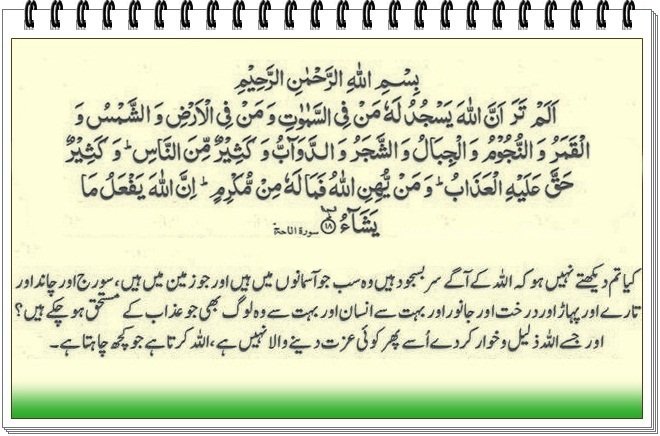 بِسْمِ اللهِ الرَّحْمٰنِ الرَّحِيْمِ
اَلَمْ تَرَ اَنَّ اللهَ يَسْجُدُ لَهٗ مَنْ فِى السَّمٰوٰتِ وَ مَنْ فِى الْاَرْضِ وَ الشَّمْسُ وَ
الْقَمَرُ وَ النُّجُوْمُ وَ الْجِبَالُ وَ الشَّجَرُ وَ الدَّوَآبُّ وَ كَثِيْرٌ مِّنَ النَّاسِ ؕ وَ كَثِيْرٌ
حَقَّ عَلَيْهِ الْعَذَابُ ؕ وَ مَنْ يُّهِنِ اللهُ فَمَا لَهٗ مِنْ مُّكْرِمٍ ؕ اِنَّ اللهَ يَفْعَلُ مَا
يَشَآءُ ﴿۱۸﴾ سورة الحج
کیا تم دیکھتے نہیں ہو کہ اللہ کے آگے سر بسجود ہیں وہ سب جو آسمانوں میں ہیں اور جو زمین میں ہیں، سورج اور چاند اور
تارے اور پہاڑ اور درخت اور جانور اور بہت سے انسان اور بہت سے وہ لوگ بھی جو عذاب کے مستحق ہو چکے ہیں؟
اور جسے اللہ ذلیل و خوار کر دے اُسے پھر کوئی عزت دینے والا نہیں ہے، اللہ کرتا ہے جو کچھ چاہتا ہے۔